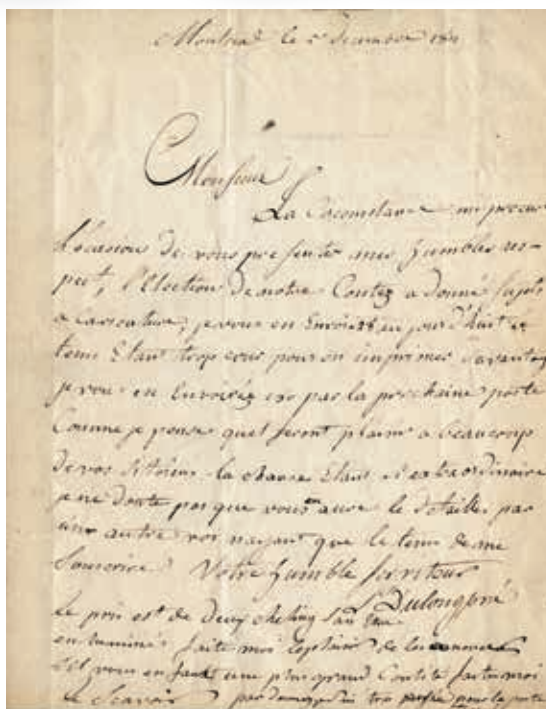 Montreal le 5 decembre
Monsieur
La me procure
l'ocasion de vous presenter mes humbles res-
pect, l'Election de notre Contez a donné sujet
a caricature, je vous en Envoi en jour d'huit le
tems Etant trop cour pour en imprimer davantag
je vous en Envoirez par la prochaine poste
Comme je pense quel seront plaire a beaucoup
de vos la chause Etant si extraordinaire
je ne doute pas que vous en aure le detaille par
une autre voi nayant que le tems de me
Souscrire Votre humble serviteur
Dulongpré
Le prix est de Deux cheling sans Etre
enluminé faite moi le plaisir de les
sil vous en faut une plus grand Contité faite moi
le scavoir par la poste